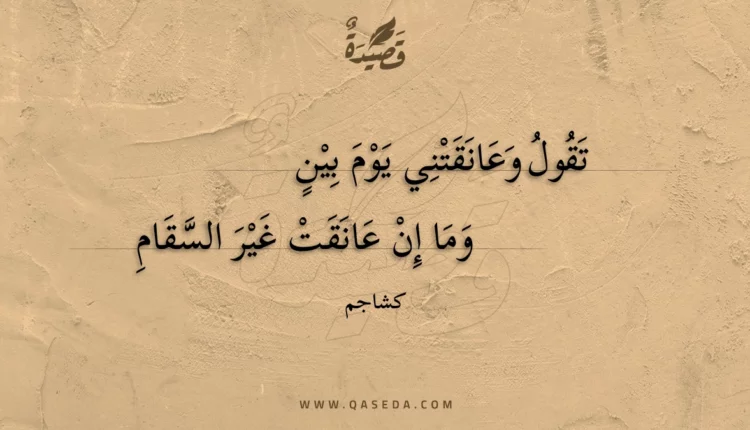 قَصِيْدَةٌ
تَقُولُ وَعَانَقَتْنِي يَوْمَ بِيْنٍ
وَمَا إِنْ عَانَقَتْ غَيْرَ السَّقَامِ
كشاجم
WWW.QASEDA.COM